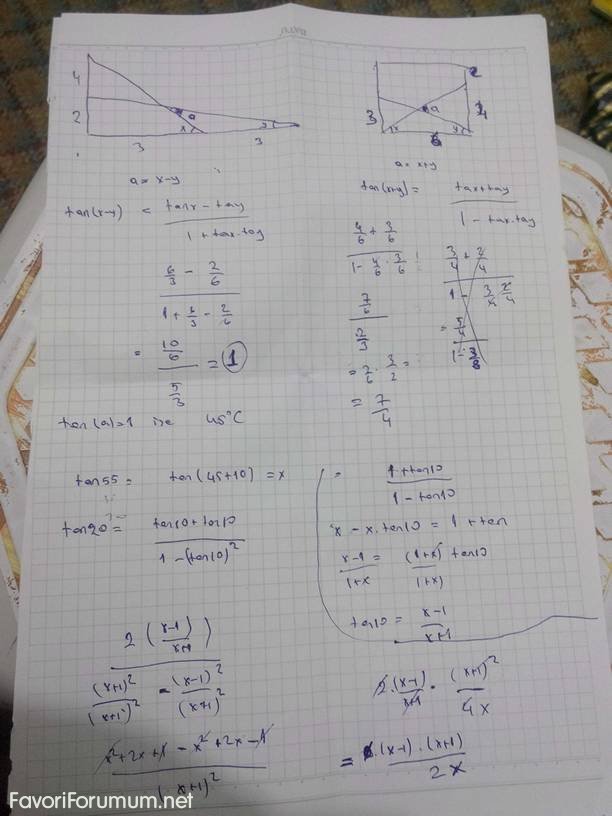 4
2
a
x
y
3
3
a = x-y
tan(x-y) = tanx - tay / 1 + tax.tay
6/3 - 2/6 / 1 + 6/3 - 2/6
= 10/6 / 5/3 = 1
tan(a)=1 ise 45°C
2
3
a
4
x
y
6
a = x+y
tan(x+y) = tax+tay / 1 - tax.tay
4/6 + 3/6 / 1 - 4/6 . 3/6
7/6 / 2/3
= 7/6 . 3/2 =
= 7/4
3/4 + 2/4 / 1 - 3/4 . 2/4
= 5/4 / 1 - 3/8
tan55 = tan(45+10) = x
tan20 = tan10 + tan10 / 1 - (tan10)^2
= 1+tan10 / 1 - tan10
x - x.tan10 = 1 + tan
x-1 / 1+x = (1+x) tan10 / (1+x)
tan10 = x-1 / x+1
2 (x-1 / x+1) / (x+1)^2 / (x+1)^2 - (x-1)^2 / (x+1)^2
x^2+2x+1 - x^2+2x-1 / (x+1)^2
2.(x-1) / x+1 . (x+1)^2 / 4x
= (x-1).(x+1) / 2x
FavoriForumum.net